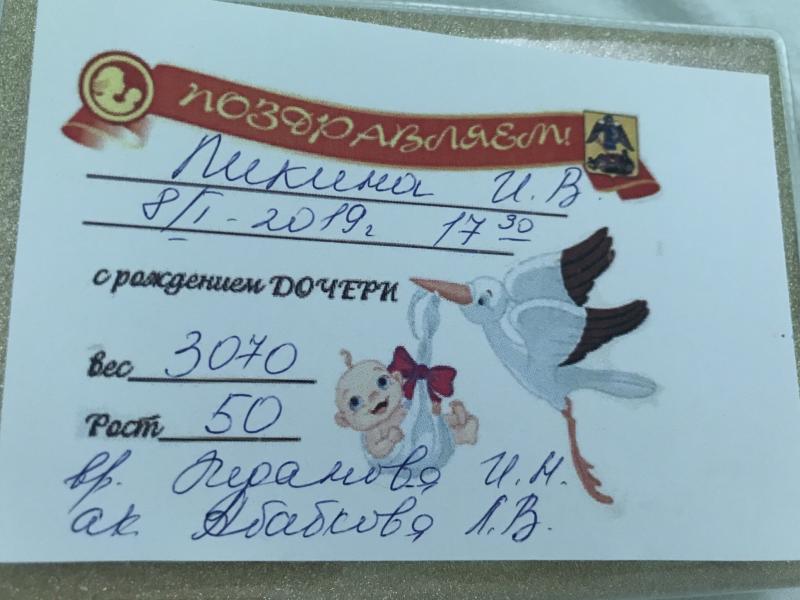 ПОЗДРАВЛЯЕМ!
Пикина И. В.
8/I - 2019г 17 30
с рождением ДОЧЕРИ
вес 3070
Рост 50
вр. И. Н.
ак. Абабкова Л. В.